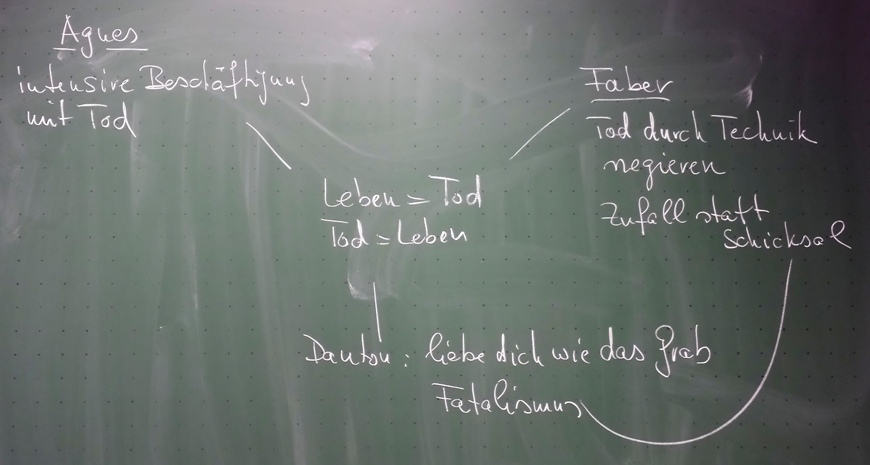 Agnes
intensive Beschäftigung
mit Tod
Faber
Tod durch Technik
negieren
Zufall statt
Schicksal
Leben = Tod
Tod = Leben
Danton: liebe dich wie das Grab
Fatalismus